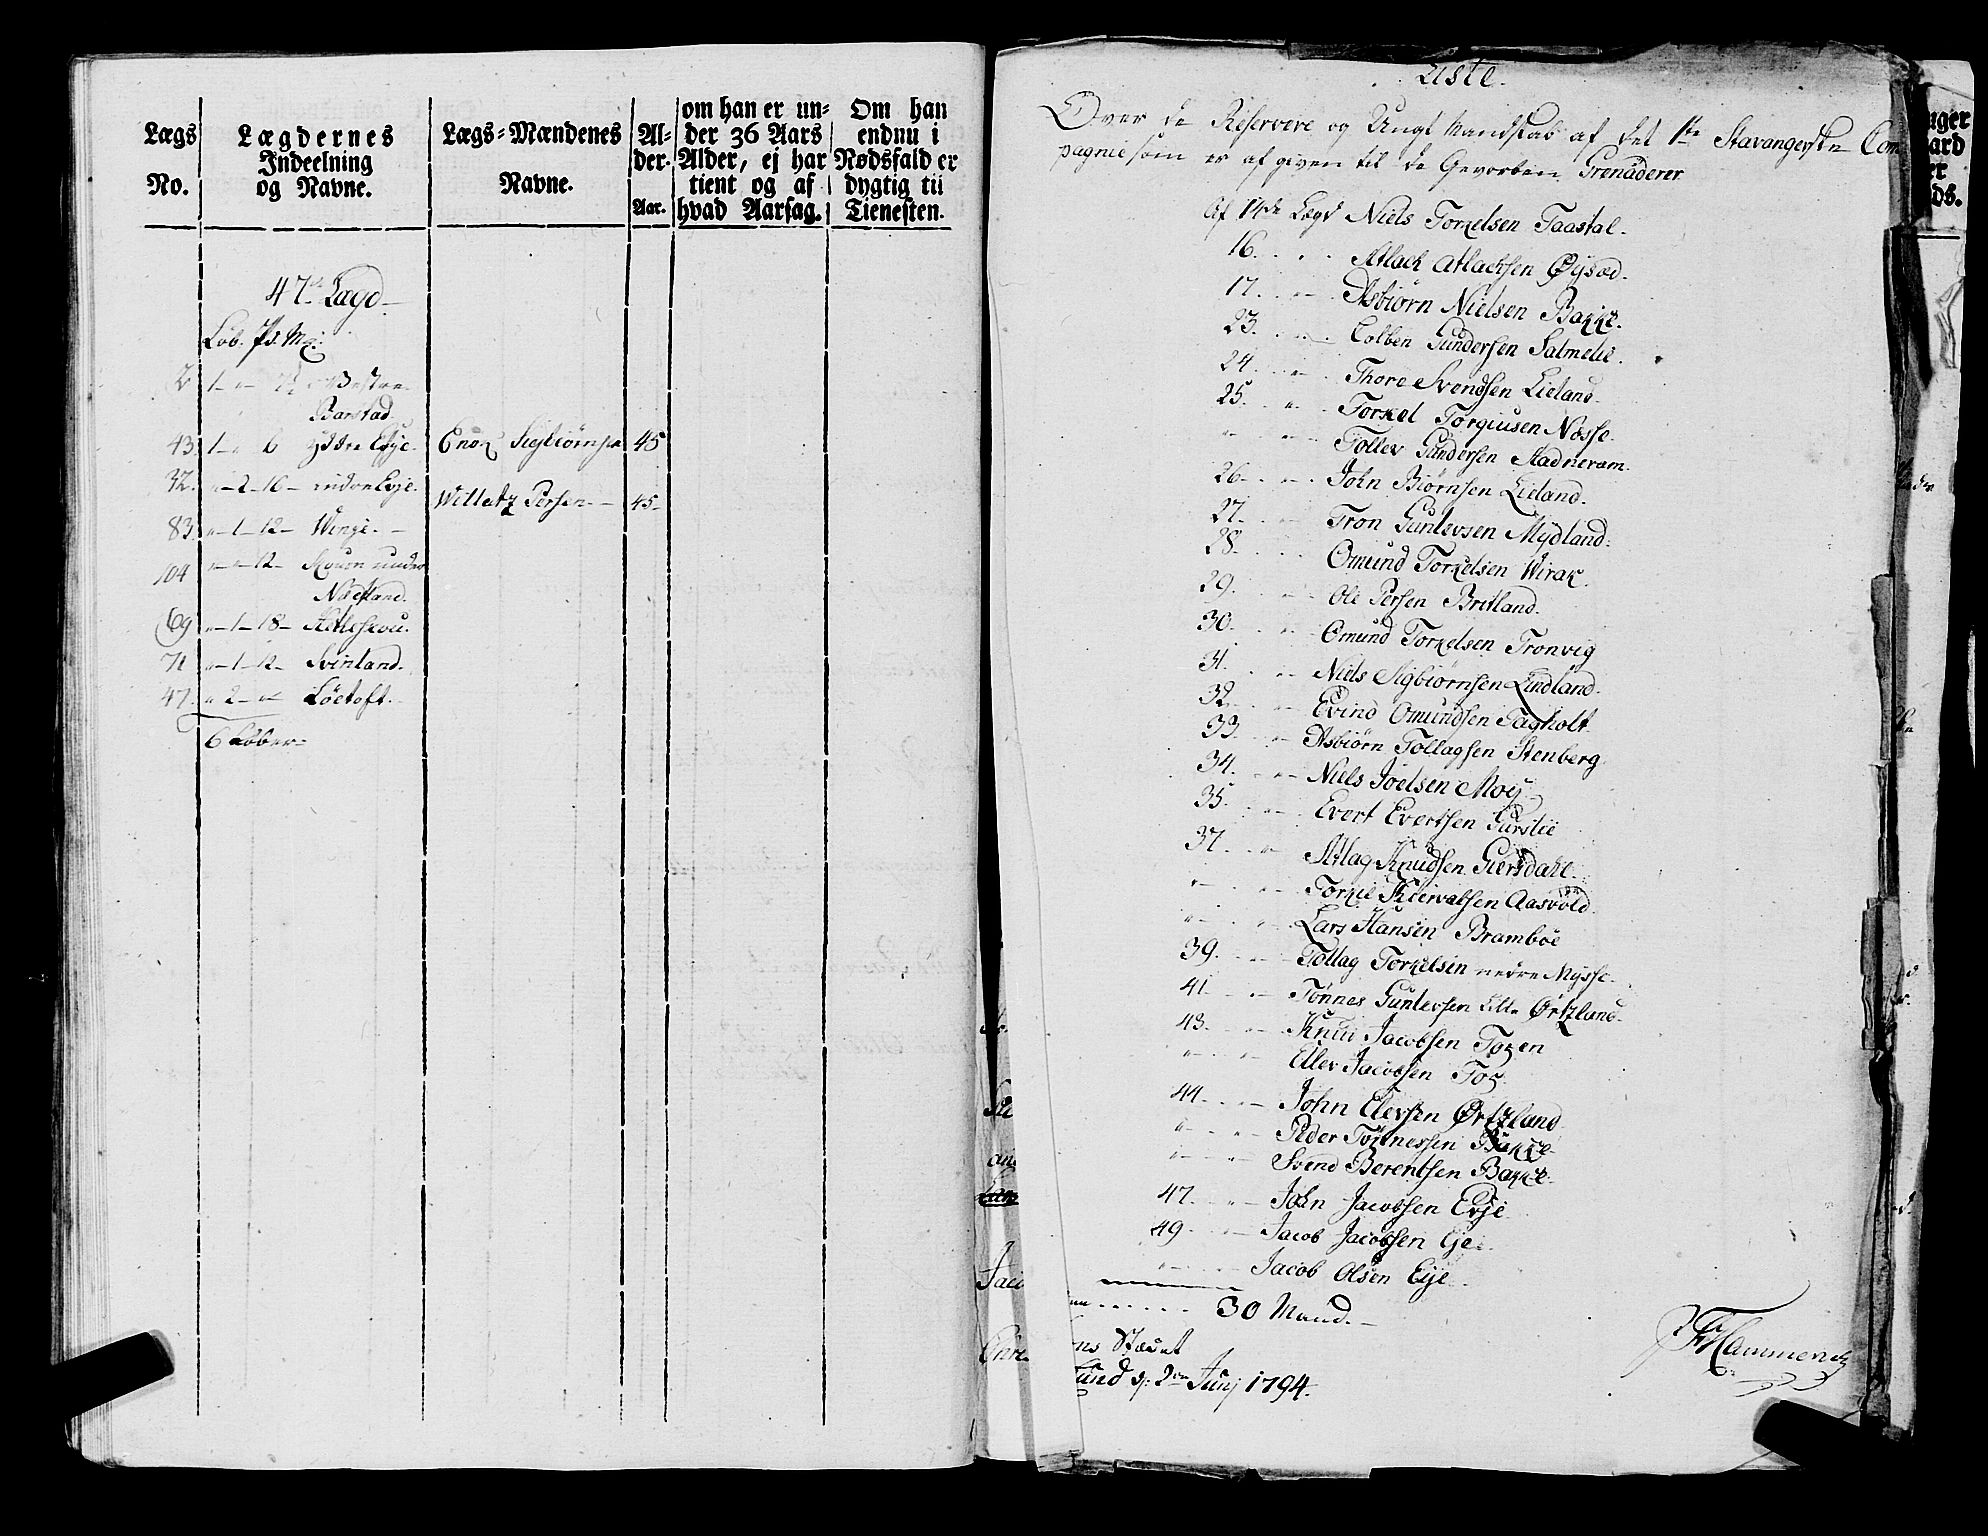 Lægs No.
Lægdernes Indeelning og Navne.
Lægs-Mændenes Navne.
Alder. Aar.
om han er under 36 Aars Alder, ej har tient og af hvad Aarsag.
Om han endnu i Nødsfald er dygtig til Tienesten.
47de Lægd
Løb. Pd. Mrk:
2 1 - " - 7½ Vestre
Barstad.
43. 1 - " 6 ydtre Evje. Enok Sigbiørnsen 45
32. " - 2 - 16 - indre Evje.
Willatz Persen - 45 -
83. " - 1 - 12 - Winge. -
104 " - " - 12 - Skouen under
Næsland.
69 " - 1 - 18 -
71 " - 1 - 12 - Svinland.
47. " 2 - " Löetoft.
6 Løber
Liste.
Over de Reservere og Ungt Mandskab af det 1ste Stavangerske Com
pagnie som er af given til de Gevorben Grenaderer
Af 14de Lægd Niels Torkelsen Taastal.
16. . . . Atlack Atlacksen Øysæd.
17. . " . Asbiørn Nielsen Bakke.
23. . . Colben Gundersen Salmelie.
24. " . Thore Svendsen Lieland.
25. . " . Torkel Torgiusen Nosse.
" . " Tollev Gundersen Stadneram.
26. . " . John Biørnsen Lieland.
27. . " Tron Guntevsen Mydland.
28. . . . Omund Torkelsen Wirak.
29. . " Ole Persen Britland.
30. . " Omund Torkelsen Tronvig
31. . " Niels Sigbiørnsen Lindland.
32. . " Evind Omundsen Tagholt
33. . " Asbiørn Tollagsen Stenberg
34. . " Niels Joelsen Moy
35. . " Evert Evertsen Gurslie
37. . " Atlag Knudsen Giersdahl.
" . " Torkel Aasvold
" . " Lars Hansen Bramböe
39. . " Tollag Torkelsen nedre Mysse.
41. . " Tönnes Guntevsen Lille Ørtzland.
43. . " Knut Jacobsen Token
" . " Ellev Jacobsen
44. . " John Elevsen Ørtzland
" . " Peder Tönnessen Bakke
" . " Svend Berentsen Bakke.
47. . " John Jacobsen Evje
49. . " Jacob Jacobsen Eje
" . " Jacob Olsen Eije
30 Mand.
2den Junj 1794.
Hammer